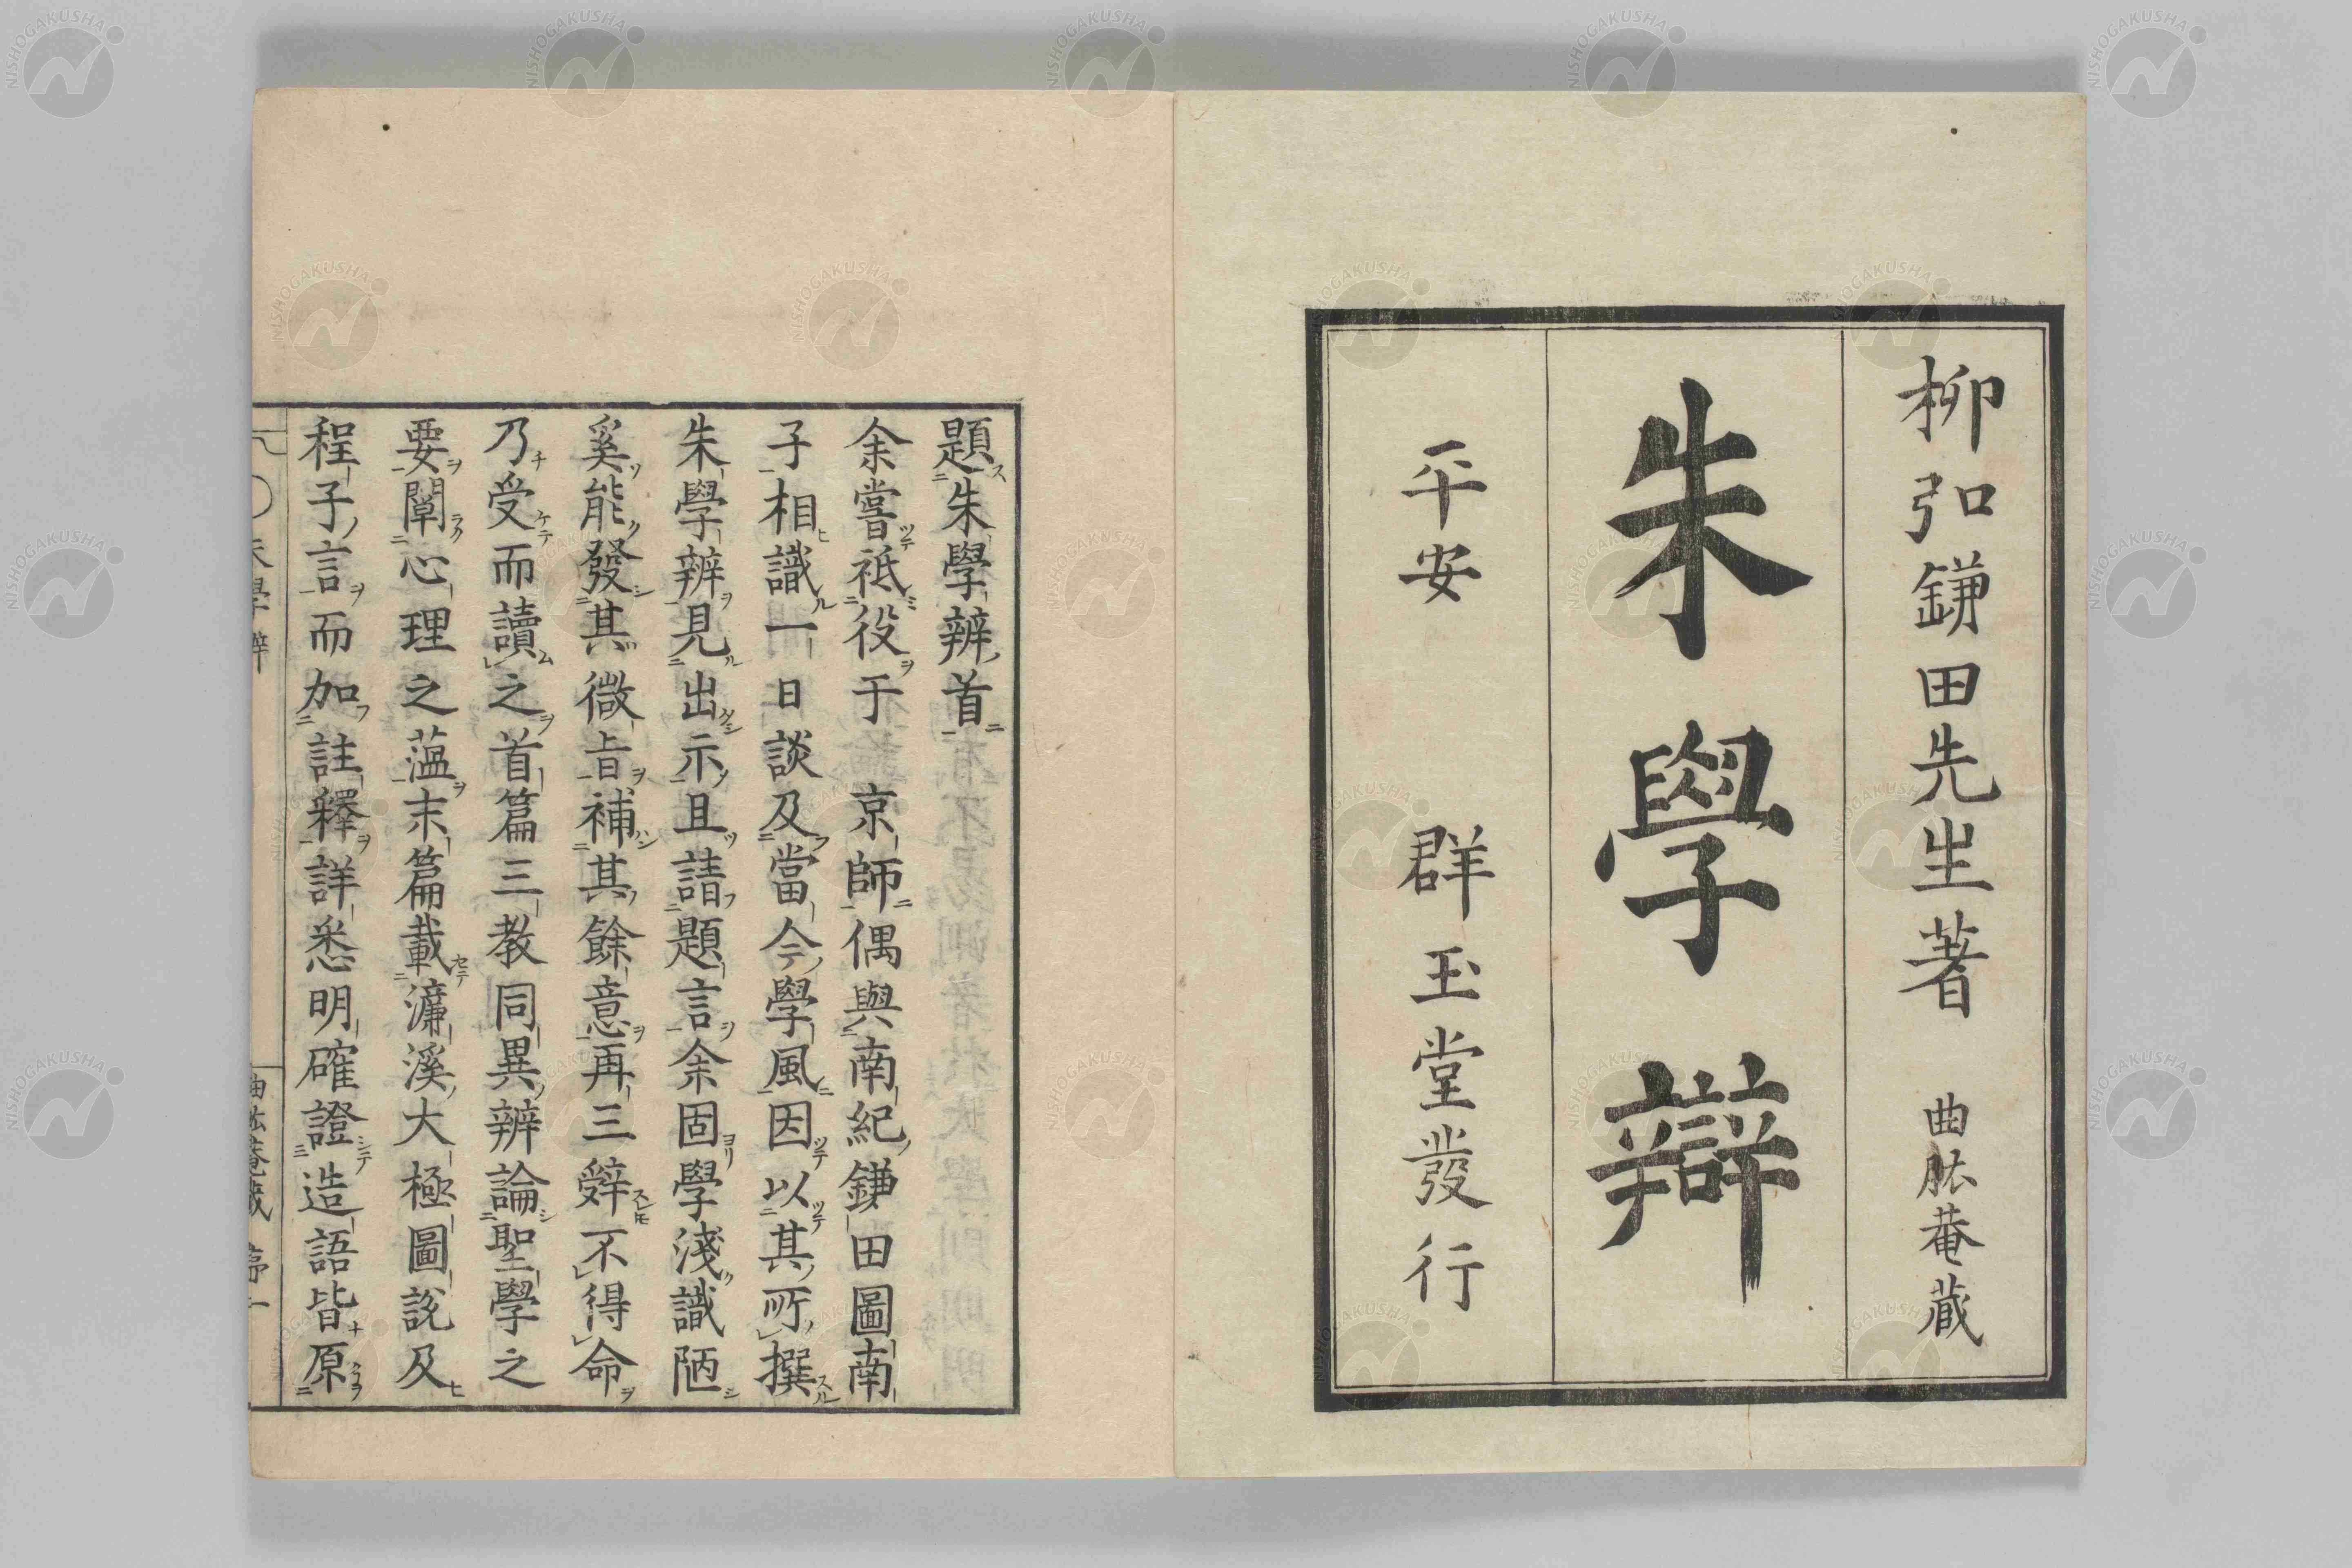 柳弘鎌田先生著 曲肱菴藏
朱學辯
平安 群玉堂發行
題朱學辨首
余嘗祗役于 京師偶與南紀鎌田圖南
子相識一日談及當今學風因以其所撰
朱學辨見出示且請題言余固學淺識陋
奚能發其微旨補其餘意再三辤不得命
乃受而讀之首篇三教同異辨論聖學之
要闡心理之薀末篇載濂溪大極圖說及
程子言而加註釋詳悉明確證造語皆原
朱學辨 曲肱菴藏 序一